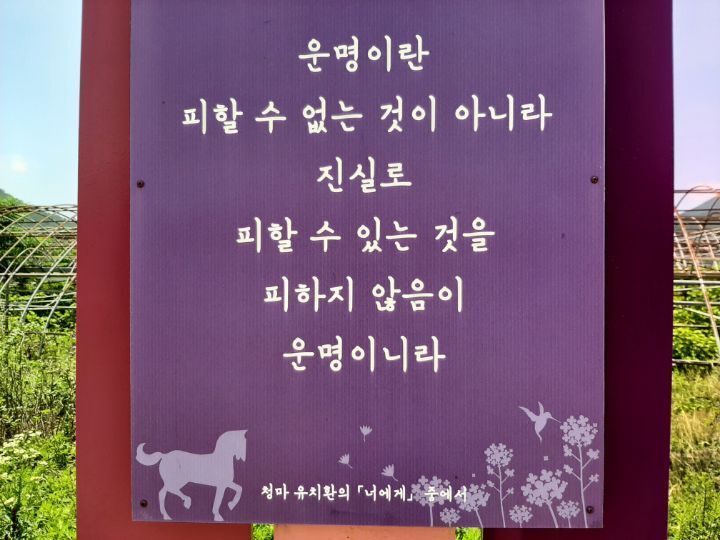 운명이란
피할 수 없는 것이 아니라
진실로
피할 수 있는 것을
피하지 않음이
운명이니라
청마 유치환의 「너에게」 중에서